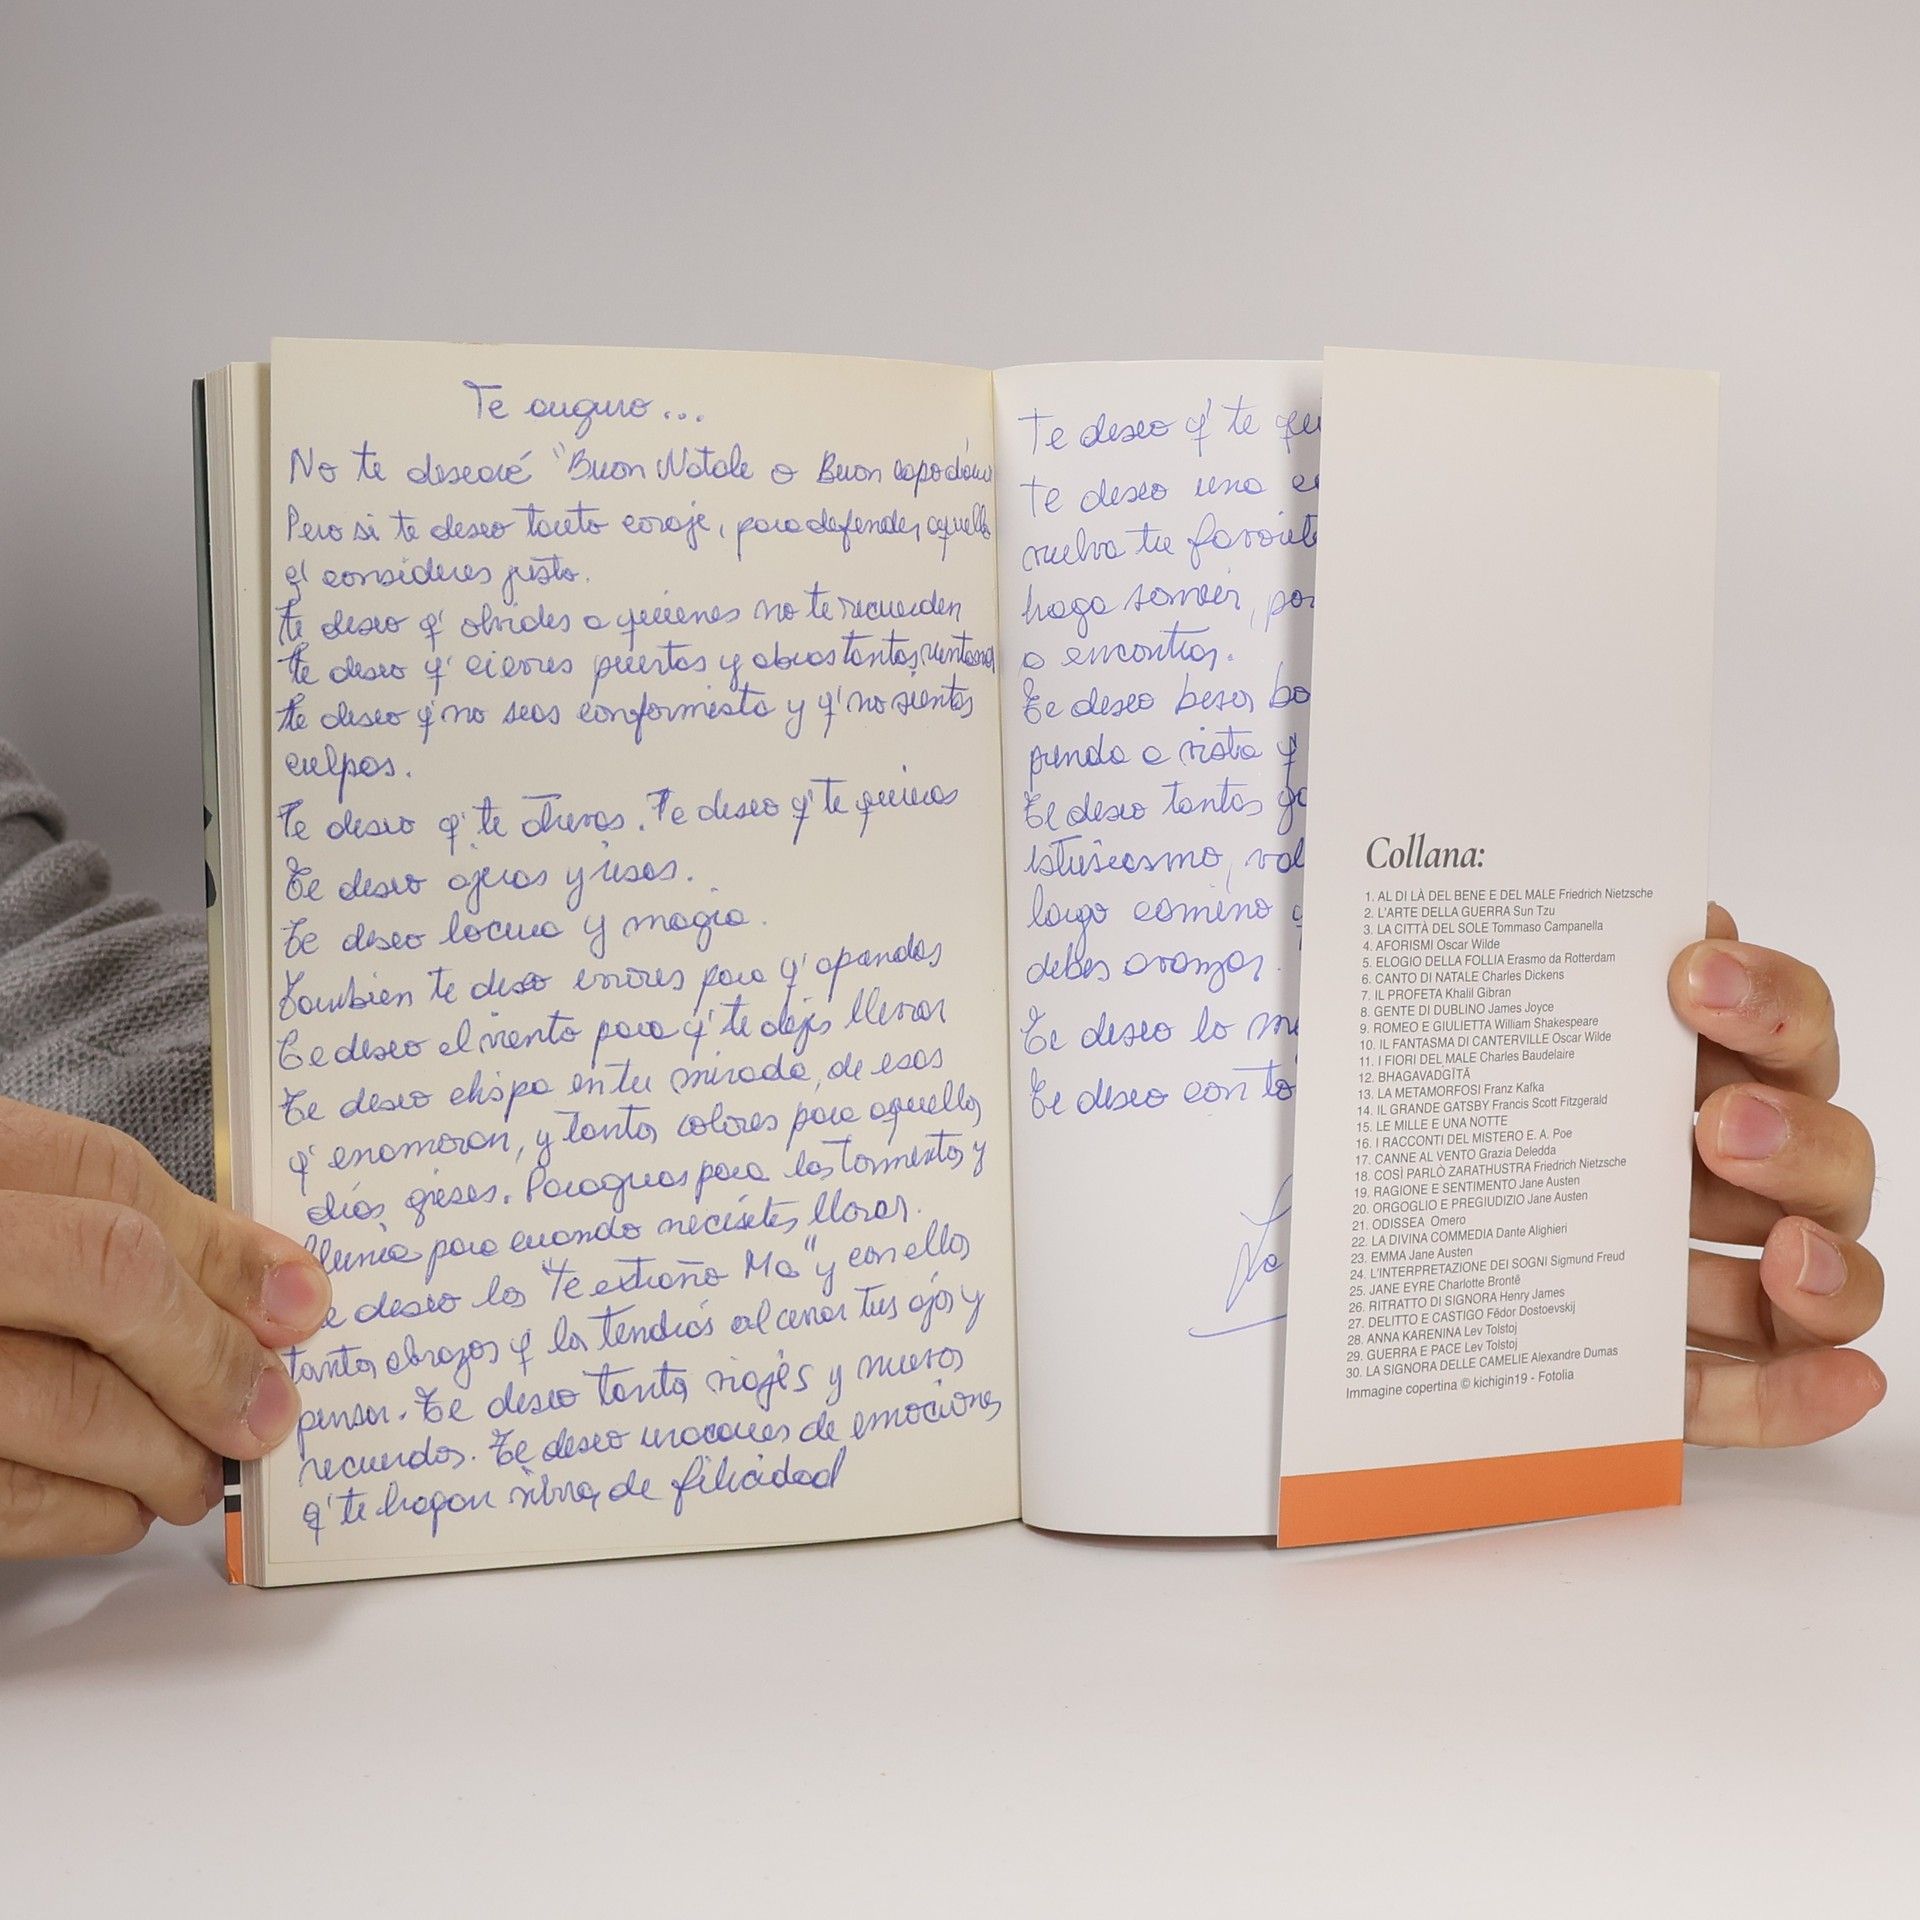 Te auguro...
No te desearé "Buon Natale o Buon capodann
Pero si te deseo tanto coraje, para defender aquello
q' consideres justo.
te deseo q' olvides a quienes no te recuerden
te deseo q' cierres puertas y abras tantas ventanas
te deseo q' no seas conformista y q' no sientas
culpas.
Te deseo q' te atrevas. Te deseo q' te quieras
Te deseo ojeras y risas.
Te deseo locura y magia.
Tambien te deseo errores para q' aprendas
Te deseo el viento para q' te dejes llevar
Te deseo chispa en tu mirada, de esas
q' enamoran, y tantos colores para aquellos
dias grises. Paraguas para las tormentas y
lluvia para cuando necesites llorar.
e deseo los "te extraño Ma" y con ellos
tantos abrazos q' los tendrás al cerrar tus ojos y
pensar. Te deseo tantos viajes y nuevos
recuerdos. Te deseo huracanes de emociones
q' te hagan vibrar de felicidad
Te deseo q' te qui
te deseo una
vuelva tu favorit
haga sonreir, por
a encontrar.
Te deseo besos ba
pierda a vista q'
Te deseo tantas ga
entusiasmo, val
largo camino q
debes avanzar.
Te deseo lo me
Te deseo con to
Collana:
1. AL DI LÀ DEL BENE E DEL MALE Friedrich Nietzsche
2. L'ARTE DELLA GUERRA Sun Tzu
3. LA CITTÀ DEL SOLE Tommaso Campanella
4. AFORISMI Oscar Wilde
5. ELOGIO DELLA FOLLIA Erasmo da Rotterdam
6. CANTO DI NATALE Charles Dickens
7. IL PROFETA Khalil Gibran
8. GENTE DI DUBLINO James Joyce
9. ROMEO E GIULIETTA William Shakespeare
10. IL FANTASMA DI CANTERVILLE Oscar Wilde
11. I FIORI DEL MALE Charles Baudelaire
12. BHAGAVADGĪTĀ
13. LA METAMORFOSI Franz Kafka
14. IL GRANDE GATSBY Francis Scott Fitzgerald
15. LE MILLE E UNA NOTTE
16. I RACCONTI DEL MISTERO E. A. Poe
17. CANNE AL VENTO Grazia Deledda
18. COSÌ PARLÒ ZARATHUSTRA Friedrich Nietzsche
19. RAGIONE E SENTIMENTO Jane Austen
20. ORGOGLIO E PREGIUDIZIO Jane Austen
21. ODISSEA Omero
22. LA DIVINA COMMEDIA Dante Alighieri
23. EMMA Jane Austen
24. L'INTERPRETAZIONE DEI SOGNI Sigmund Freud
25. JANE EYRE Charlotte Brontë
26. RITRATTO DI SIGNORA Henry James
27. DELITTO E CASTIGO Fëdor Dostoevskij
28. ANNA KARENINA Lev Tolstoj
29. GUERRA E PACE Lev Tolstoj
30. LA SIGNORA DELLE CAMELIE Alexandre Dumas
Immagine copertina © kichigin19 - Fotolia